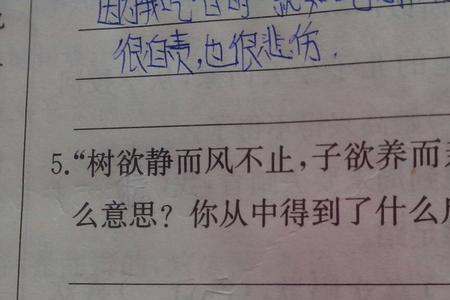 很自责,也很悲伤.
5.“树欲静而风不止,子欲养而
么意思?你从中得到了什么